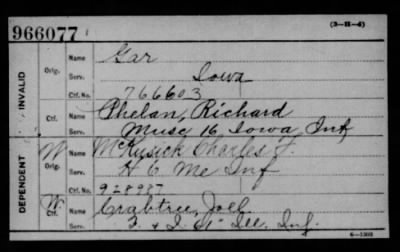 (3-II-4)
966077
INVALID
Orig. Name Gar
Serv. Iowa
Ctf. No. 766603
Ctf. Name Phelan, Richard
Serv. Musc 16 Iowa Inf
DEPENDENT
W Orig. Name McKusick Charles F.
Serv. H 6 Me Inf
Ctf. No. 928987
W Ctf. Name Crabtree, Joel
Serv. Ill. Inf.
6-1593